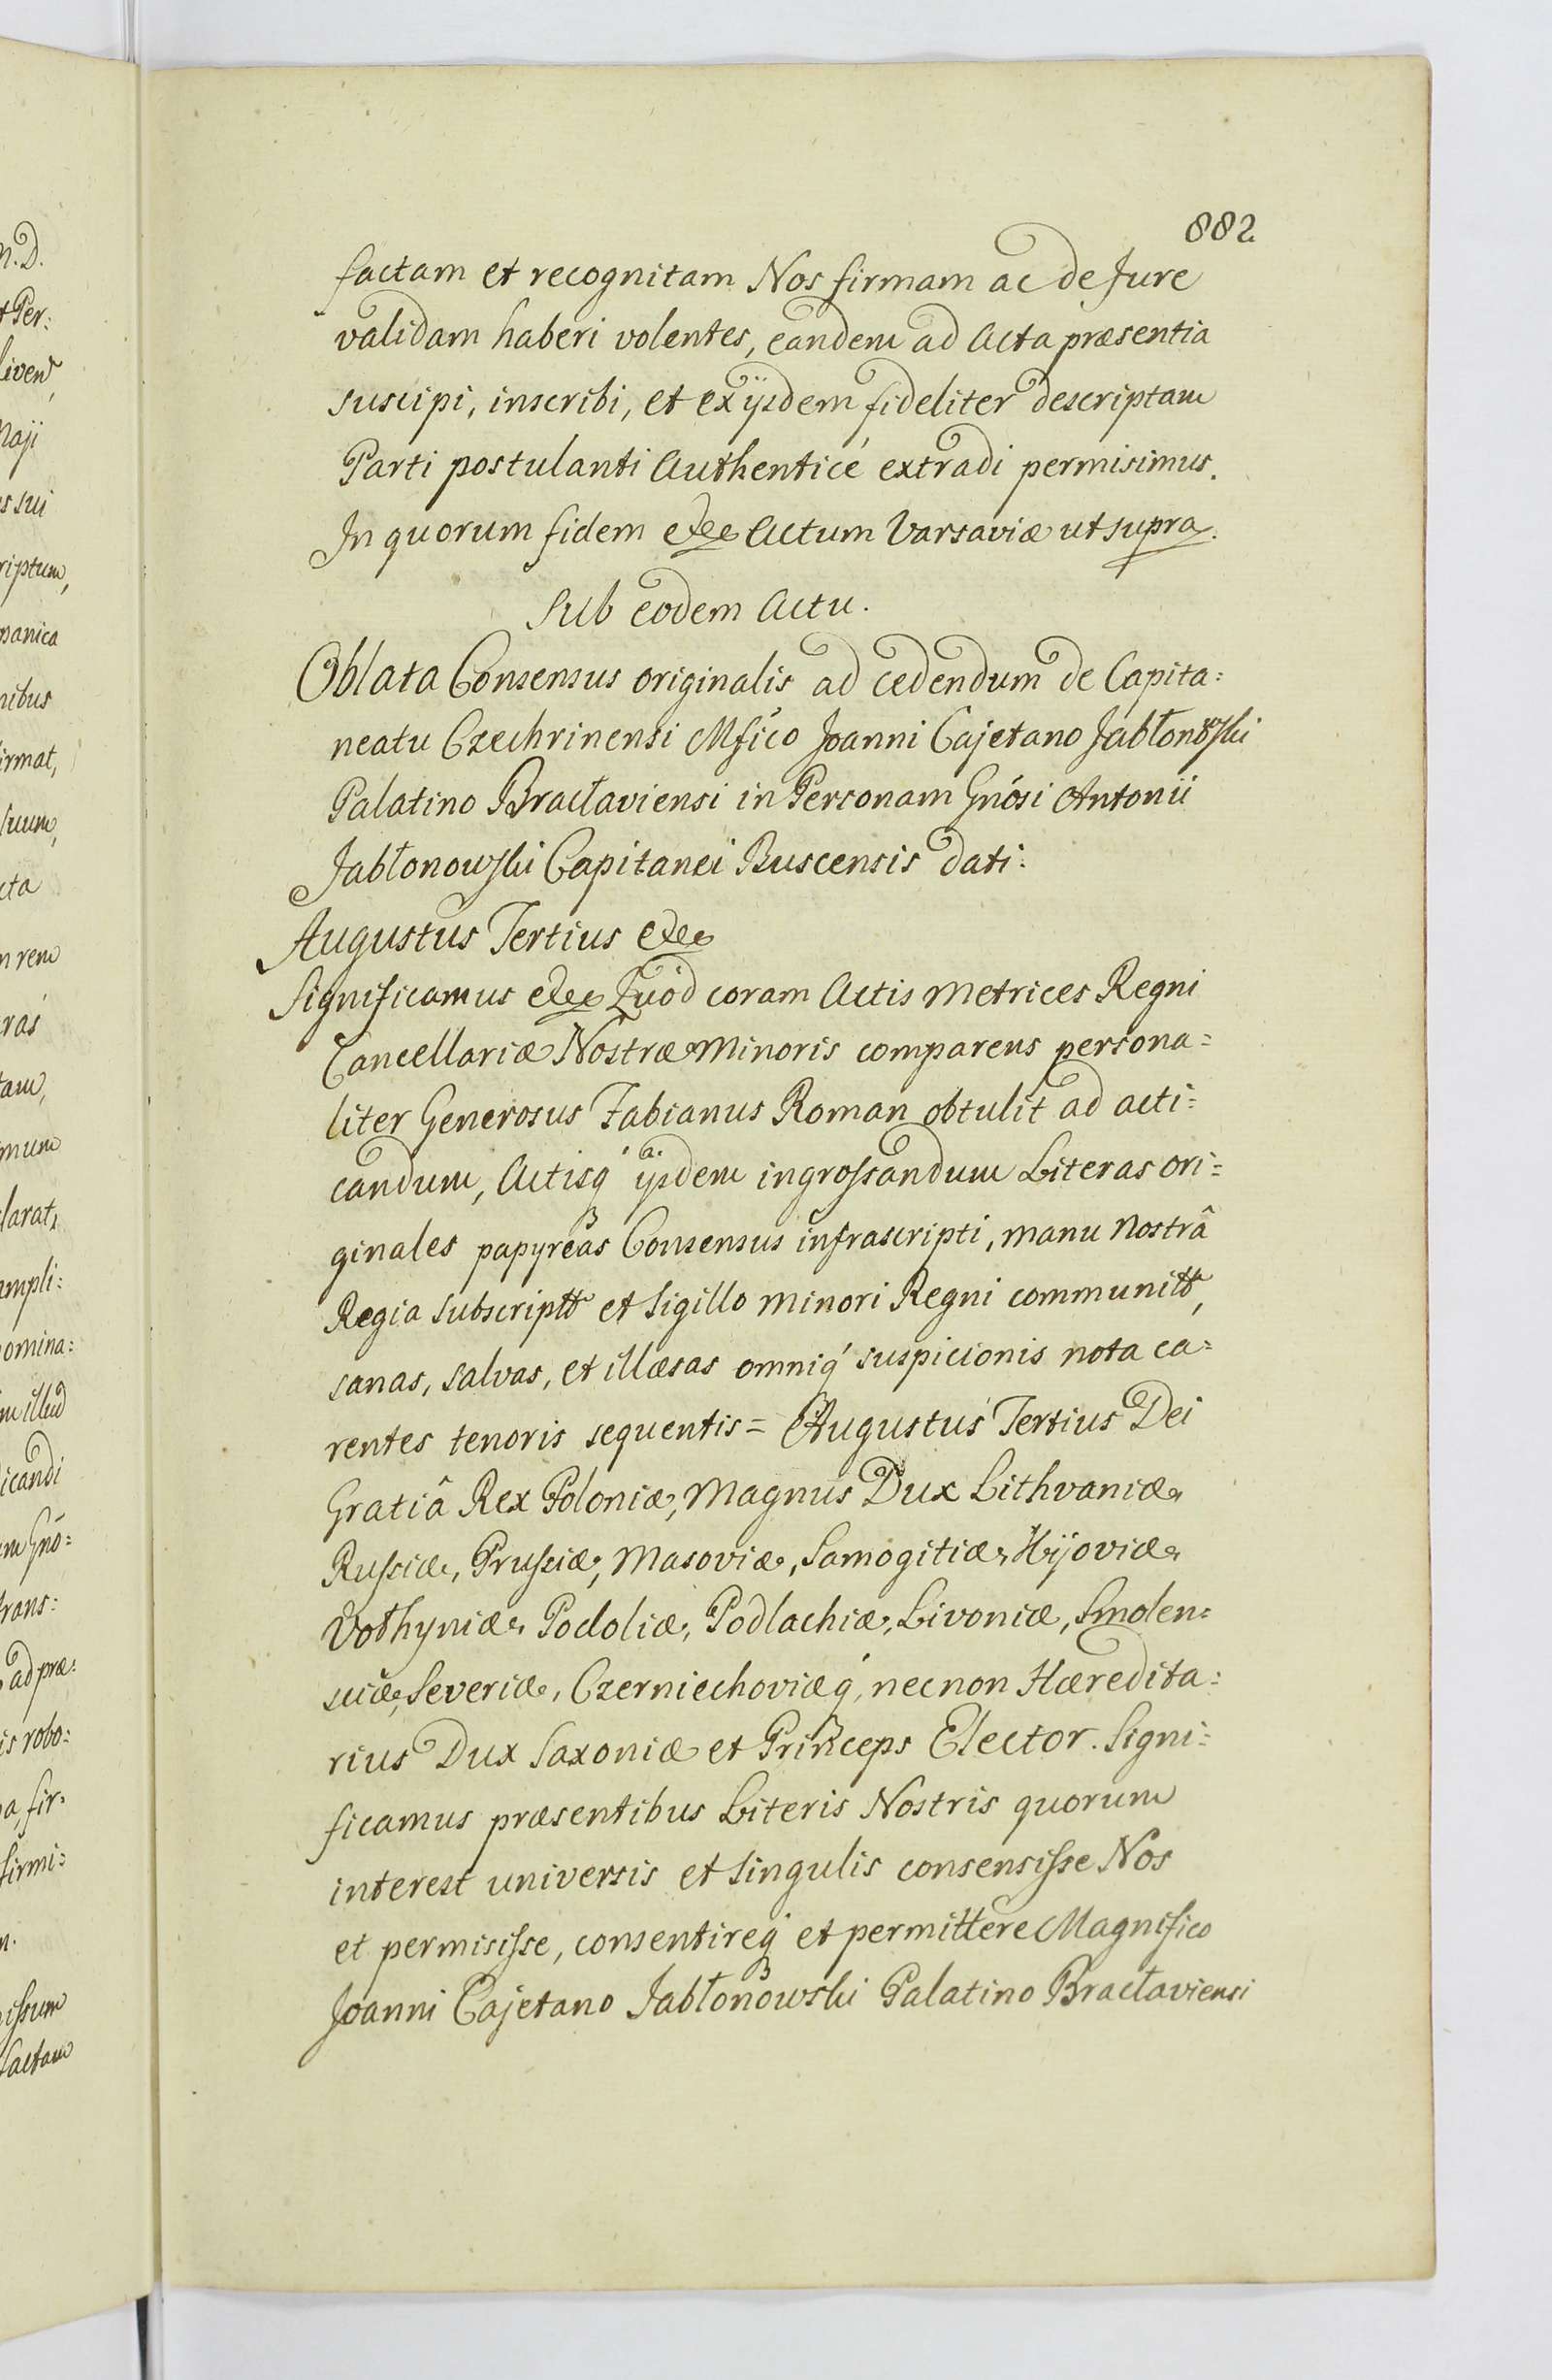 882
factam et recognitam Nos firmam ac de Jure
validam haberi volentes, eandem ad Acta præsentia
suscipi, inscribi, et ex ijsdem fideliter descriptam
Parti postulanti Authenticé extradi permisimus.
In quorum fidem etc Actum Varsaviæ ut supra.
Sub eodem Actu.
Oblata Consensus originalis ad cedendum de Capita=
neatu Czechrinensi Mfico Joanni Cajetano Jabłonowski
Palatino Bracłaviensi in Personam Gnósi Antonii
Jabłonowski Capitanei Buscensis dati.
Augustus Tertius etc
Significamus etc Quód coram Actis Metrices Regni
Cancellariæ Nostræ Minoris comparens persona=
liter Generosus Fabianus Roman obtulit ad acti=
candum, Actisq́ ijsdem ingrossandum Literas ori=
ginales papyreas Consensus infrascripti, manu Nostrâ
Regia subscriptt et Sigillo minori Regni communitt,
sanas, salvas, et illæsas omniq́ suspicionis nota ca=
rentes tenoris sequentis = Augustus Tertius Dei
Gratiâ Rex Poloniæ, Magnus Dux Lithvaniæ,
Russiæ, Prussiæ, Masoviæ, Samogitiæ, Kijoviæ,
Vołhyniæ, Podoliæ, Podlachiæ, Livoniæ, Smolen=
sciæ, Severiæ, Czerniechoviæq́, necnon Hæredita=
rius Dux Saxoniæ et Princeps Elector. Signi=
ficamus præsentibus Literis Nostris quorum
interest universis et singulis consensisse Nos
et permisisse, consentireq́ et permittere Magnifico
Joanni Cajetano Jabłonowski Palatino Bracłaviensi